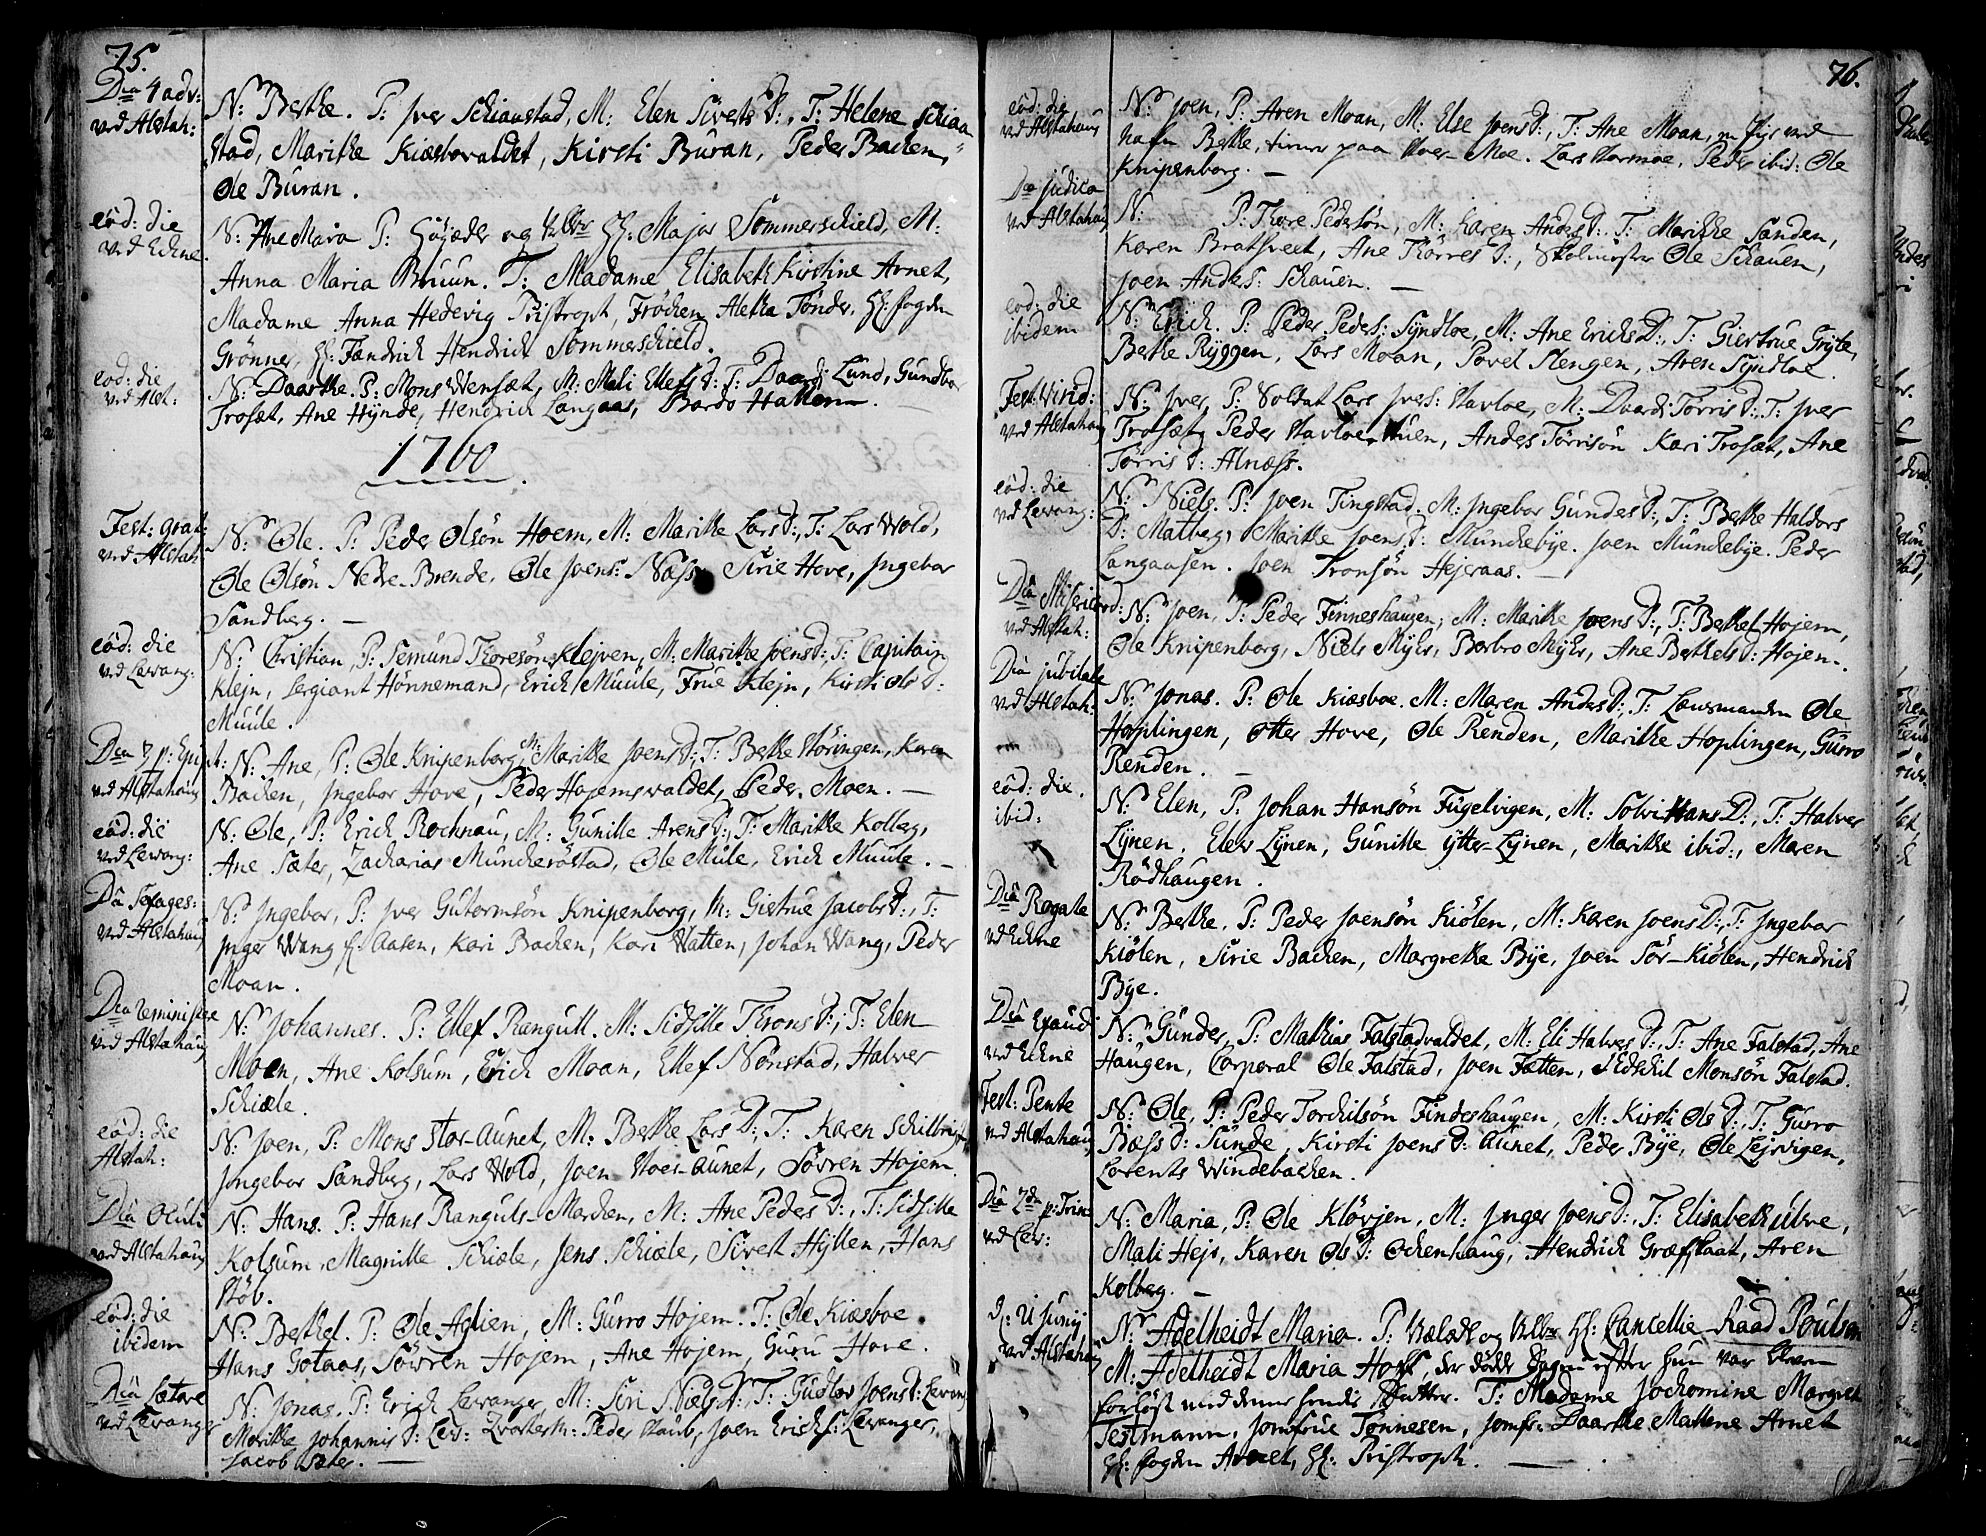 75.
Dca 4 adv:
ved Alstah:
N: Bethe. P: Jver Schiaustad, M: Elen Siverts D:, T: Helene Schiau
stad, Marithe Kiæsbovaldet, Kirsti Buran, Peder Backen,
Ole Buran.
eod: die
ved Echne
N: Ane Maria P: Høyædle og Velbr HH: Major Sommerschield, M:
Anna Maria Bruun. T: Madame Elisabeth Kirstine Arnet,
Madame Anna Hedevig Pristroph, Frøchen Aletha Tønder, HH: fogden
Grønner, H: Fændrich Hendrich Sommerschield.
eod: die
ved Alst:
N: Daarthe. P: Mons Wensæt, M: Mali Ellefs D: T: Daardi Lund, Gundbor
Trosæt, Ane Hynde, Hendrich Langaas, Bardo Hallem.
1760
Fest: grat:
ved Alstah:
N: Ole. P: Peder Olsön Hoem, M: Marithe Lars D:, T: Lars Wold,
Ole Olsön Nedre Brende, Ole Joens: Næss, Sirie Hove, Jngebor
Sandberg.
eod: die
ved Levang:
N: Christian, P: Semund Thoresön Klejven, M: Marithe Joens D: T: Capitain
Klejn, Sergiant Hønnemand, Erich Muule, Frue Klejn, Kirsti Ols D:
Muule.
Dca 3 p: Epiph:
ved Alstahaug
N: Ane, P: Ole Knipenborg, M: Marithe Joens D: T: Bethe Støringen, Karen
Backen, Jngebor Hove, Peder Hojemsvaldet, Peder Moen.
eod: die
ved Levang:
N: Ole, P: Erich Rochnau, M: Gunille Arens D:, T: Marithe Kolberg,
Ane Sæter, Zacharias Munckerøstad, Ole Mule, Erich Muule.
Dca Sexages:
ved Alstahaug
N: Jngebor, P: Jver Gutormsön Knipenborg, M: Giertrue Jacobs D:, T:
Jnger Wang f: Aasen, Kari Backen, Kari Watten, Johan Wang, Peder
Moan.
Dca Reminiscere
ved Alstahaug
N: Johannes. P: Ellef Rangull. M: Sidsille Throns D:, T: Elen
Moen, Ane Kolsum, Erich Moan, Ellef Nønstad, Halver
Schiæle.
eod: die
Alstah:
N: Joen, P: Mons Stor-Aunet, M: Bethe Lars D:, T: Karen
Jngebor Sandberg, Lars Wold, Joen Stor-Aunet, Søvren Hojem.
Dca Oculi
ved Alstahaug
N: Hans. P: Hans Ranguls-Marchen, M: Ane Peders D:, T: Sidsille
Kolsum, Magnille Schiæle, Jens Schiæle, Sivert Hyllen, Hans
Støb.
eod: die
ibidem
N: Berthel. P: Ole Aglien, M: Gurro Hojem. T: Ole Kiæsboe
Hans Gotaas, Søvren Hojem, Ane Hojem, Guru Hove.
Dca Lætare
ved Levang:
N: Jonas. P: Erich Levanger, M: Siri Niels D: T: Gudlov Joens D: Levang
Marithe Johannis D: Lev: Qvarterm: Peder Staub, Joen Erichs: Levanger,
Jacob Sæter.
76.
eod: die
ved Alstahaug
N: Joen, P: Aren Moan, M: Else Joens D:, T: Ane Moan, en Pige ved
nafn Bethe, tiener paa Stoer-Moe. Lars Stormoe, Peder ibid: Ole
Knipenborg.
Dca Judica
ved Alstahaug
N: P: Thore Pedersön, M: Karen Anders D:, T: Marithe Sanden,
Karen Bratsveet, Ane Thørres D:, Skolmester Ole Schauen,
Joen Anders: Schauen.
eod: die
ibidem
N: Erich. P: Peder Peders: Syndloe, M: Ane Erichs D:, T: Giertrue Gryte,
Bethe Ryggen, Lars Moan, Povel Slengen, Aren Syndloe.
Fest: Virid:
ved Alstahaug
N: Jver, P: Soldat Lars Jvers: Stavloe, M: Daardi Tørris D:, T: Jver
Trosæt, Peder Stavloe-Stuen, Anders Tørrisön Kari Trosæt, Ane
Tørris D: Alnæss.
eod: die
ved Levang:
N: Niels. P: Joen Tingstad. M: Jngebor Gunders D:, T: Bethe Haldors
D: Matberg, Marithe Joens D: Munckebye. Joen Munckebye. Peder
Langaasen. Joen Tronsön Hejeraas.
Dca Misericord:
ved Alstah:
N: Joen, P: Peder Finneshaugen, M: Marithe Joens D:, T: Berthel Hojem,
Ole Knipenborg, Niels Myhr, Barbro Myhr, Ane Berthels D: Hojem.
Dca Jubilate
ved Alstah:
N: Jonas. P: Ole Kiæsboe. M: Maren Anders D:, T: Lænsmanden Ole
Hoplingen, Otter Hove, Ole Renden, Marithe Hoplingen, Gurro
Renden.
eod: die
ibid:
N: Elen, P: Johan Hansön Fugelvigen, M: Solvi Hans D:, T: Halver
Lynen. Elen Lynen, Gunille ytter-Lynen, Marithe ibid:, Maren
Rødhaugen.
Dca Rogate
ved Echne
N: Bethe. P: Peder Joensön Kiölen, M: Karen Joens D:, T: Jngebor
Kiölen, Sirie Backen, Margrethe Bye, Joen Sør-Kiölen, Hendrich
Bye.
Dca Exaudi
ved Echne
N: Gunder, P: Mathias Falstadvaldet, M: Eli Halvers D:, T: Ane Falstad, Ane
Haugen, Corporal Ole Falstad, Joen Fætten, Edschil Monsön Falstad.
Fest: Pente
ved Alstahaug
N: Ole, P: Peder Torchilsön Findeshaugen, M: Kirsti Ols D:, T: Gurro
Bæss D: Sunde, Kirsti Joens D: Aunet, Peder Bye, Ole Lejrvigen,
Lorents Windebacken.
Dca 2dn p: Trin
ved Lev:
N: Maria, P: Ole Kløvjen, M: Jnger Joens D:, T: Elisabeth Ulve,
Mali Hejs, Karen Ols D: Ockenhaug, Hendrich Græfslaat, Aren
Kolberg.
d: 11 Junij
ved Alstahaug
N: Adelheidt Maria. P: Velædle og Velbr HH: Cancellie-Raad Poulsen
M: Adelheidt Maria Hoff, der døde Dagen efter hun var bleven
forløst med denne hendes Datter. T: Madame Jochomine Margreth
Testmann, Jomfrue Tønnesen, Jomfr: Daarthe Mallene Arnet
HH: fogden Arnet, HH: Pristroph.